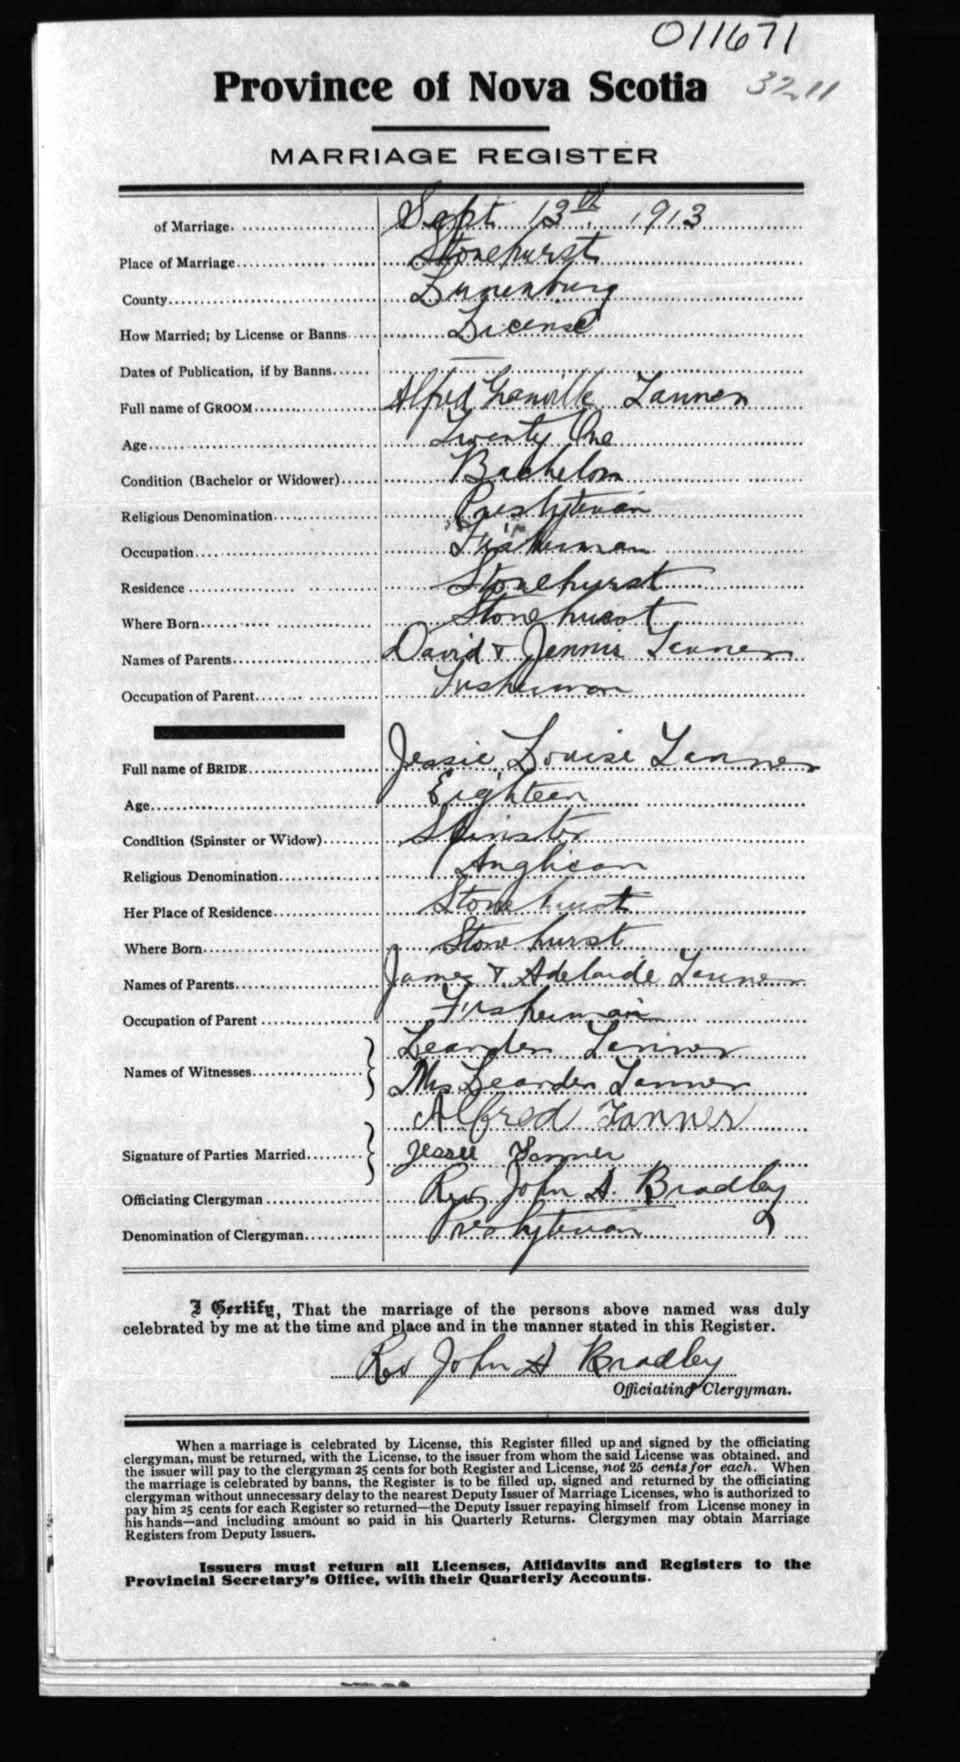 011671
Province of Nova Scotia 3211
MARRIAGE REGISTER
of Marriage. Sept 13th 1913
Place of Marriage Stonehurst
County Lunenburg
How Married; by License or Banns License
Dates of Publication, if by Banns —
Full name of GROOM Alfred Granville Tanner
Age Twenty One
Condition (Bachelor or Widower) Bachelor
Religious Denomination Presbyterian
Occupation Fisherman
Residence Stonehurst
Where Born Stonehurst
Names of Parents David & Jennie Tanner
Occupation of Parent Fisherman
Full name of BRIDE Jessie Louise Tanner
Age Eighteen
Condition (Spinster or Widow) Spinster
Religious Denomination Anglican
Her Place of Residence Stonehurst
Where Born Stonehurst
Names of Parents James & Adelaide Tanner
Occupation of Parent Fisherman
Leander Tanner
Names of Witnesses Mrs Leander Tanner
Alfred Tanner
Signature of Parties Married Jessie Tanner
Officiating Clergyman Rev John A. Bradley
Denomination of Clergyman Presbyterian
I Certify, That the marriage of the persons above named was duly
celebrated by me at the time and place and in the manner stated in this Register.
Rev John A Bradley
Officiating Clergyman.
When a marriage is celebrated by License, this Register filled up and signed by the officiating
clergyman, must be returned, with the License, to the issuer from whom the said License was obtained, and
the issuer will pay to the clergyman 25 cents for both Register and License, not 25 cents for each. When
the marriage is celebrated by banns, the Register is to be filled up, signed and returned by the officiating
clergyman without unnecessary delay to the nearest Deputy Issuer of Marriage Licenses, who is authorized to
pay him 25 cents for each Register so returned—the Deputy Issuer repaying himself from License money in
his hands—and including amount so paid in his Quarterly Returns. Clergymen may obtain Marriage
Registers from Deputy Issuers.
Issuers must return all Licenses, Affidavits and Registers to the
Provincial Secretary's Office, with their Quarterly Accounts.